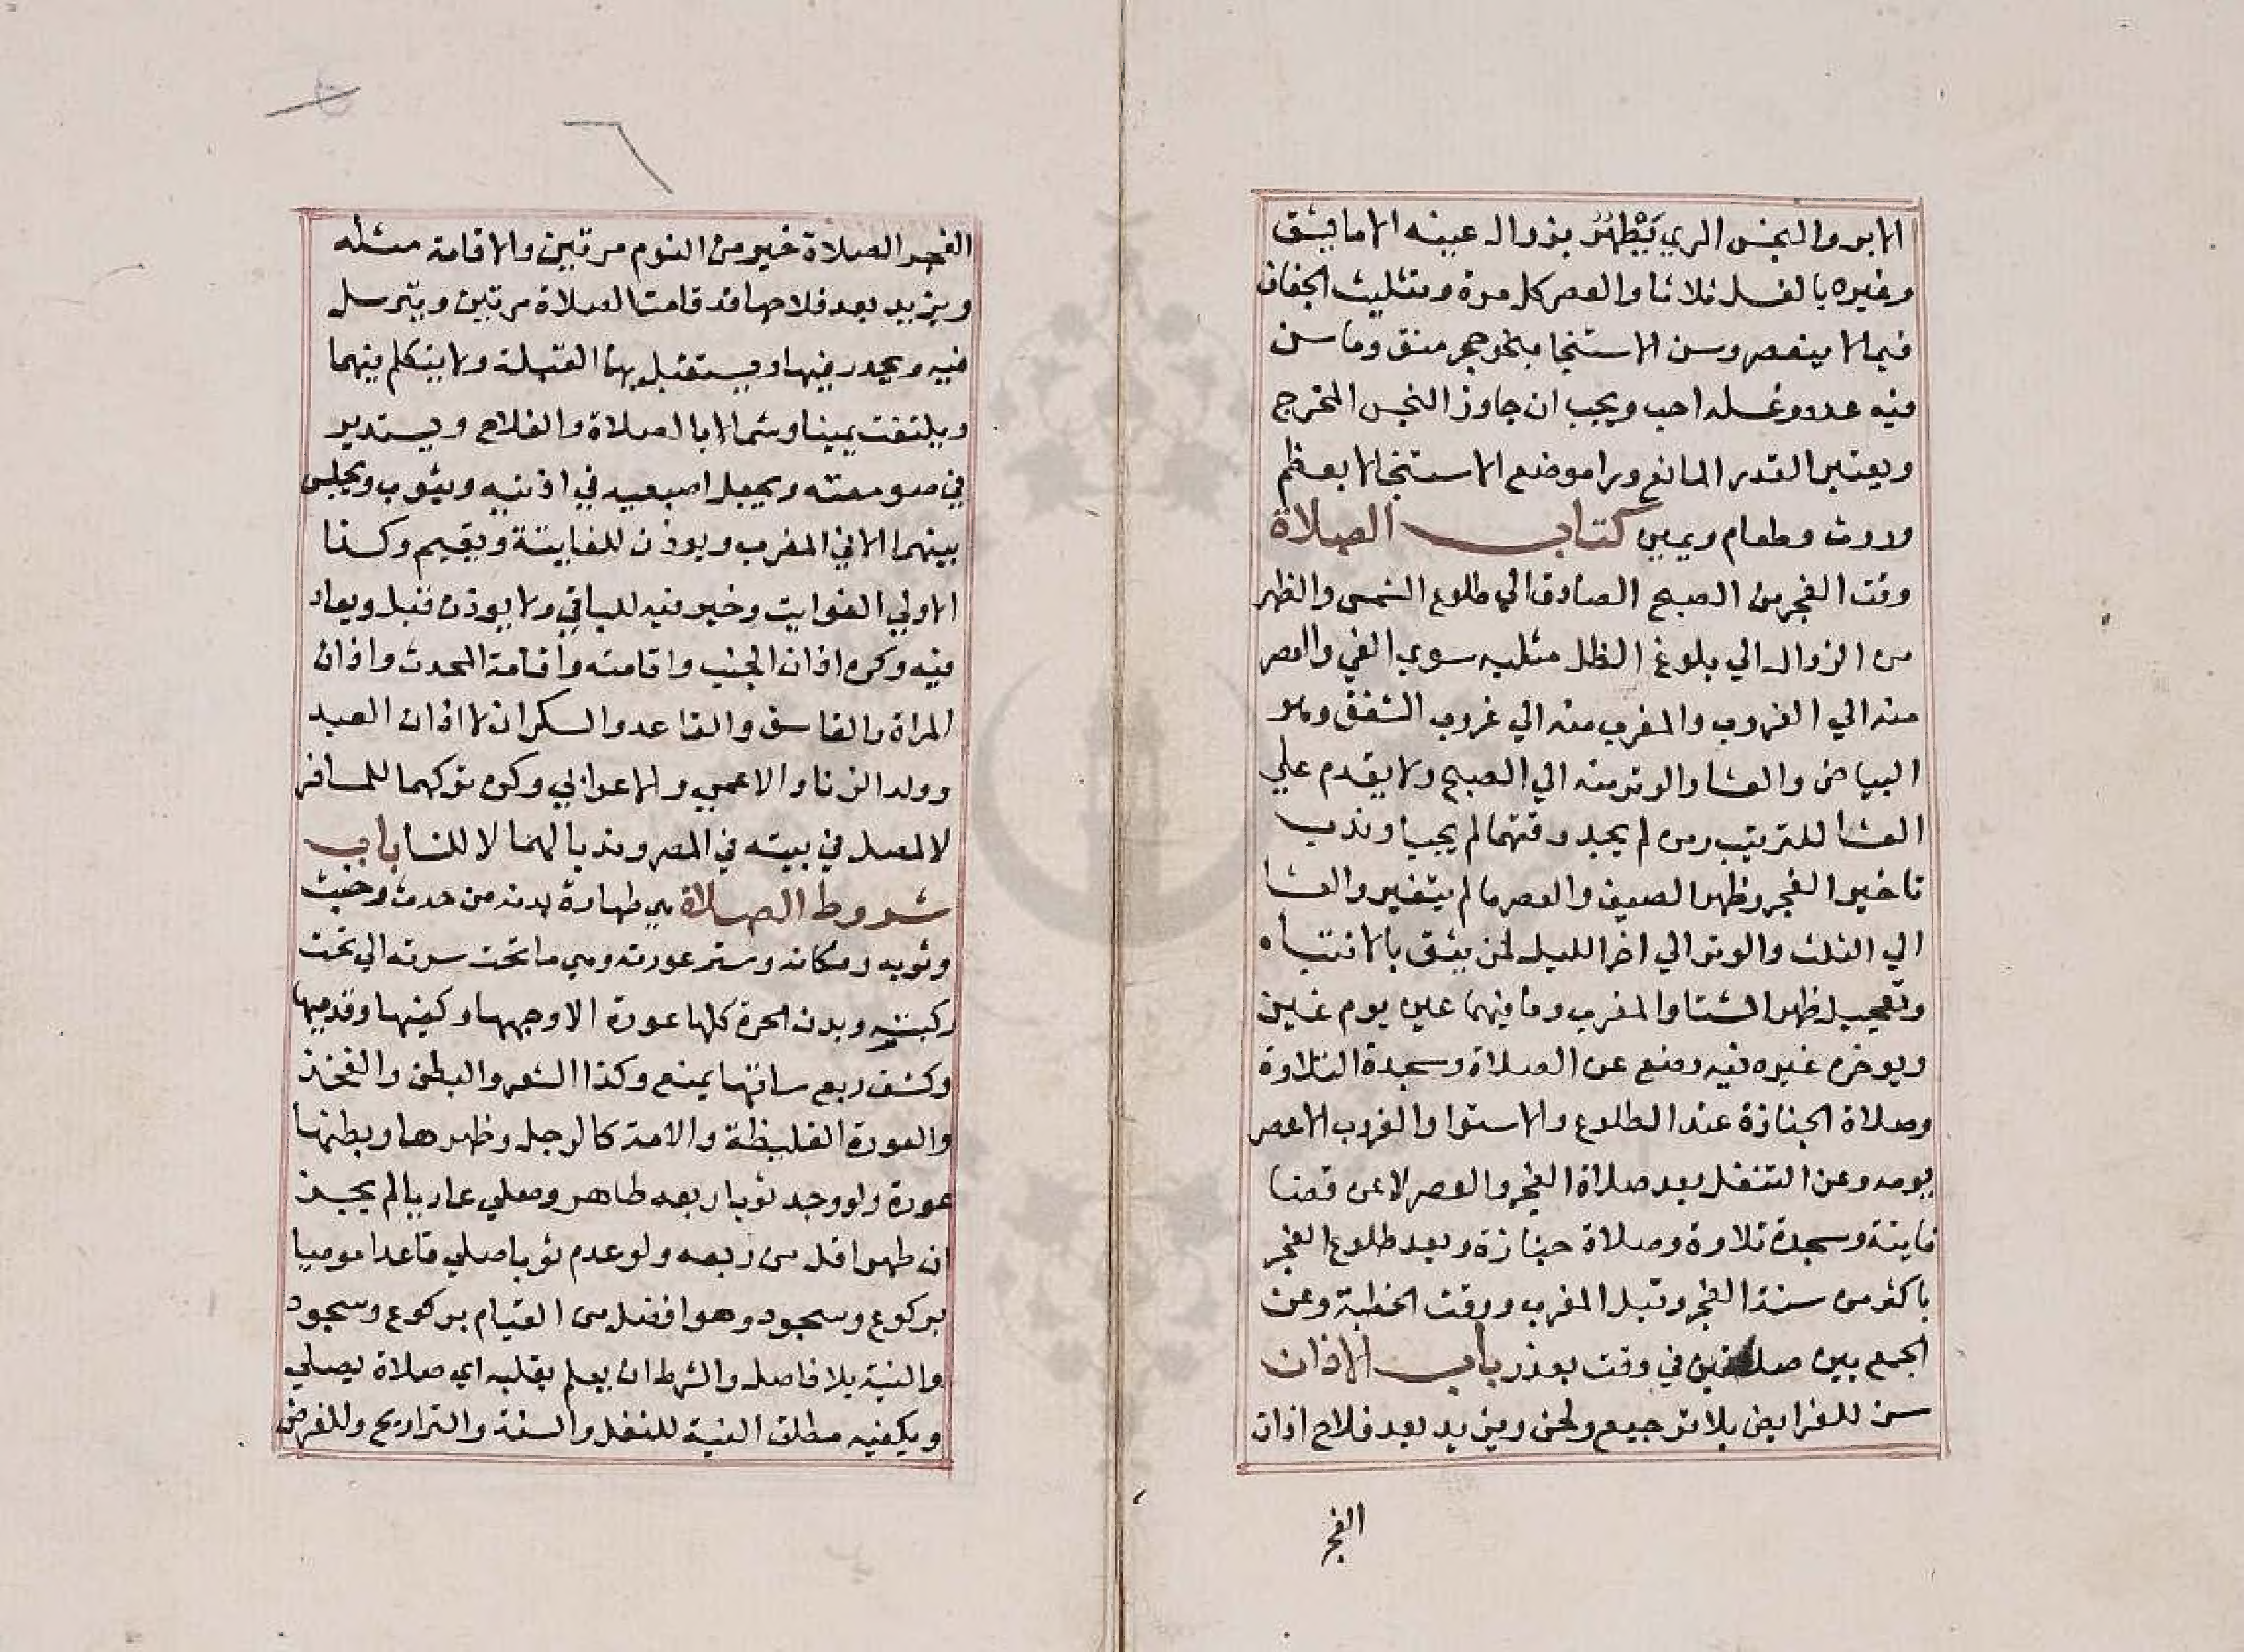 الابر والنجس المري يَطْهُرُ بزوال عينه الا ما يشق
وغيره بالغسل ثلاثا والعصر كل مرة وتثليث الجفاف
فيما لا ينعصر وسن الاستنجا بنحو حجر منق وما سن
فيه عدد وغسله احب ويجب ان جاوز النجس المخرج
ويعتبر القدر المانع ورا موضع الاستنجا لا بعظم
وروث وطعام ويمين كتاب الصلاة
وقت الفجر من الصبح الصادق الي طلوع الشمس والظهر
من الزوال الي بلوغ الظل مثليه سوي الفي والعصر
منه الي الغروب والمغرب منه الي غروب الشفق وهو
البياض والعشا والوتر منه الي الصبح ولا يقدم علي
العشا للترتيب ومن لم يجد وقتهما لم يجبا وندب
تاخير الفجر وظهر الصيف والعصر ما لم يتغير والعشا
الي الثلث والوتر الي اخر الليل لمن يثق بالانتباه
وتعجيل ظهر الشتا والمغرب وما فيهما عين يوم غين
ويوخر غيره فيه ومنع عن الصلاة وسجدة التلاوة
وصلاة الجنازة عند الطلوع والاستوا والغروب الا عصر
يومه وعن التنفل بعد صلاة الفجر والعصر لا عن قضا
فايتة وسجدة تلاوة وصلاة جنازة وبعد طلوع الفجر
باكثر من سنة الفجر وقبل المغرب ووقت الخطبة وعن
الجمع بين صلاتين في وقت بعذر باب الاذان
سن للفرايض بلا ترجيع ولحن ويزيد بعد فلاح اذان
الفجر
الفجر الصلاة خير من النوم مرتين والاقامة مثله
ويزيد بعد فلاحها قد قامت الصلاة مرتين ويترسل
فيه ويحدر فيها ويستقبل بهما القبلة ولا يتكلم فيهما
ويلتفت يمينا وشمالا بالصلاة والفلاح ويستدير
في صومعته ويجعل اصبعيه في اذنيه ويثوب ويجلس
بينهما الا في المغرب ويوذن للفايتة ويقيم وكذا
الاولي الفوايت وخير فيه للباقي ولا يوذن قبل ويعاد
فيه وكره اذان الجنب واقامته واقامة المحدث واذان
المراة والفاسق والقاعد والسكران لا اذان العبد
وولد الزنا والاعمي والاعرابي وكره تركهما للمسافر
لا لمصل في بيته في المصر وندبا لهما لا للنسا باب
شروط الصلاة هي طهارة بدنه من حدث وخبث
وثوبه ومكانه وستر عورته وهي ما تحت سرته الي تحت
ركبته وبدن الحرة كلها عورة الا وجهها وكفيها وقدميها
وكشف ربع ساقها يمنع وكذا الشعر والبطن والفخذ
والعورة الغليظة والامة كالرجل وظهرها وبطنها
عورة ولو وجد ثوبا ربعه طاهر وصلي عاريا لم يجز
ان طهر اقل من ربعه ولو عدم ثوبا صلي قاعدا موميا
بركوع وسجود وهو افضل من القيام بركوع وسجود
والنية بلا فاصل والشرط ان يعلم بقلبه اي صلاة يصلي
ويكفيه مطلق النية للنفل والسنة والتراويح وللفرض